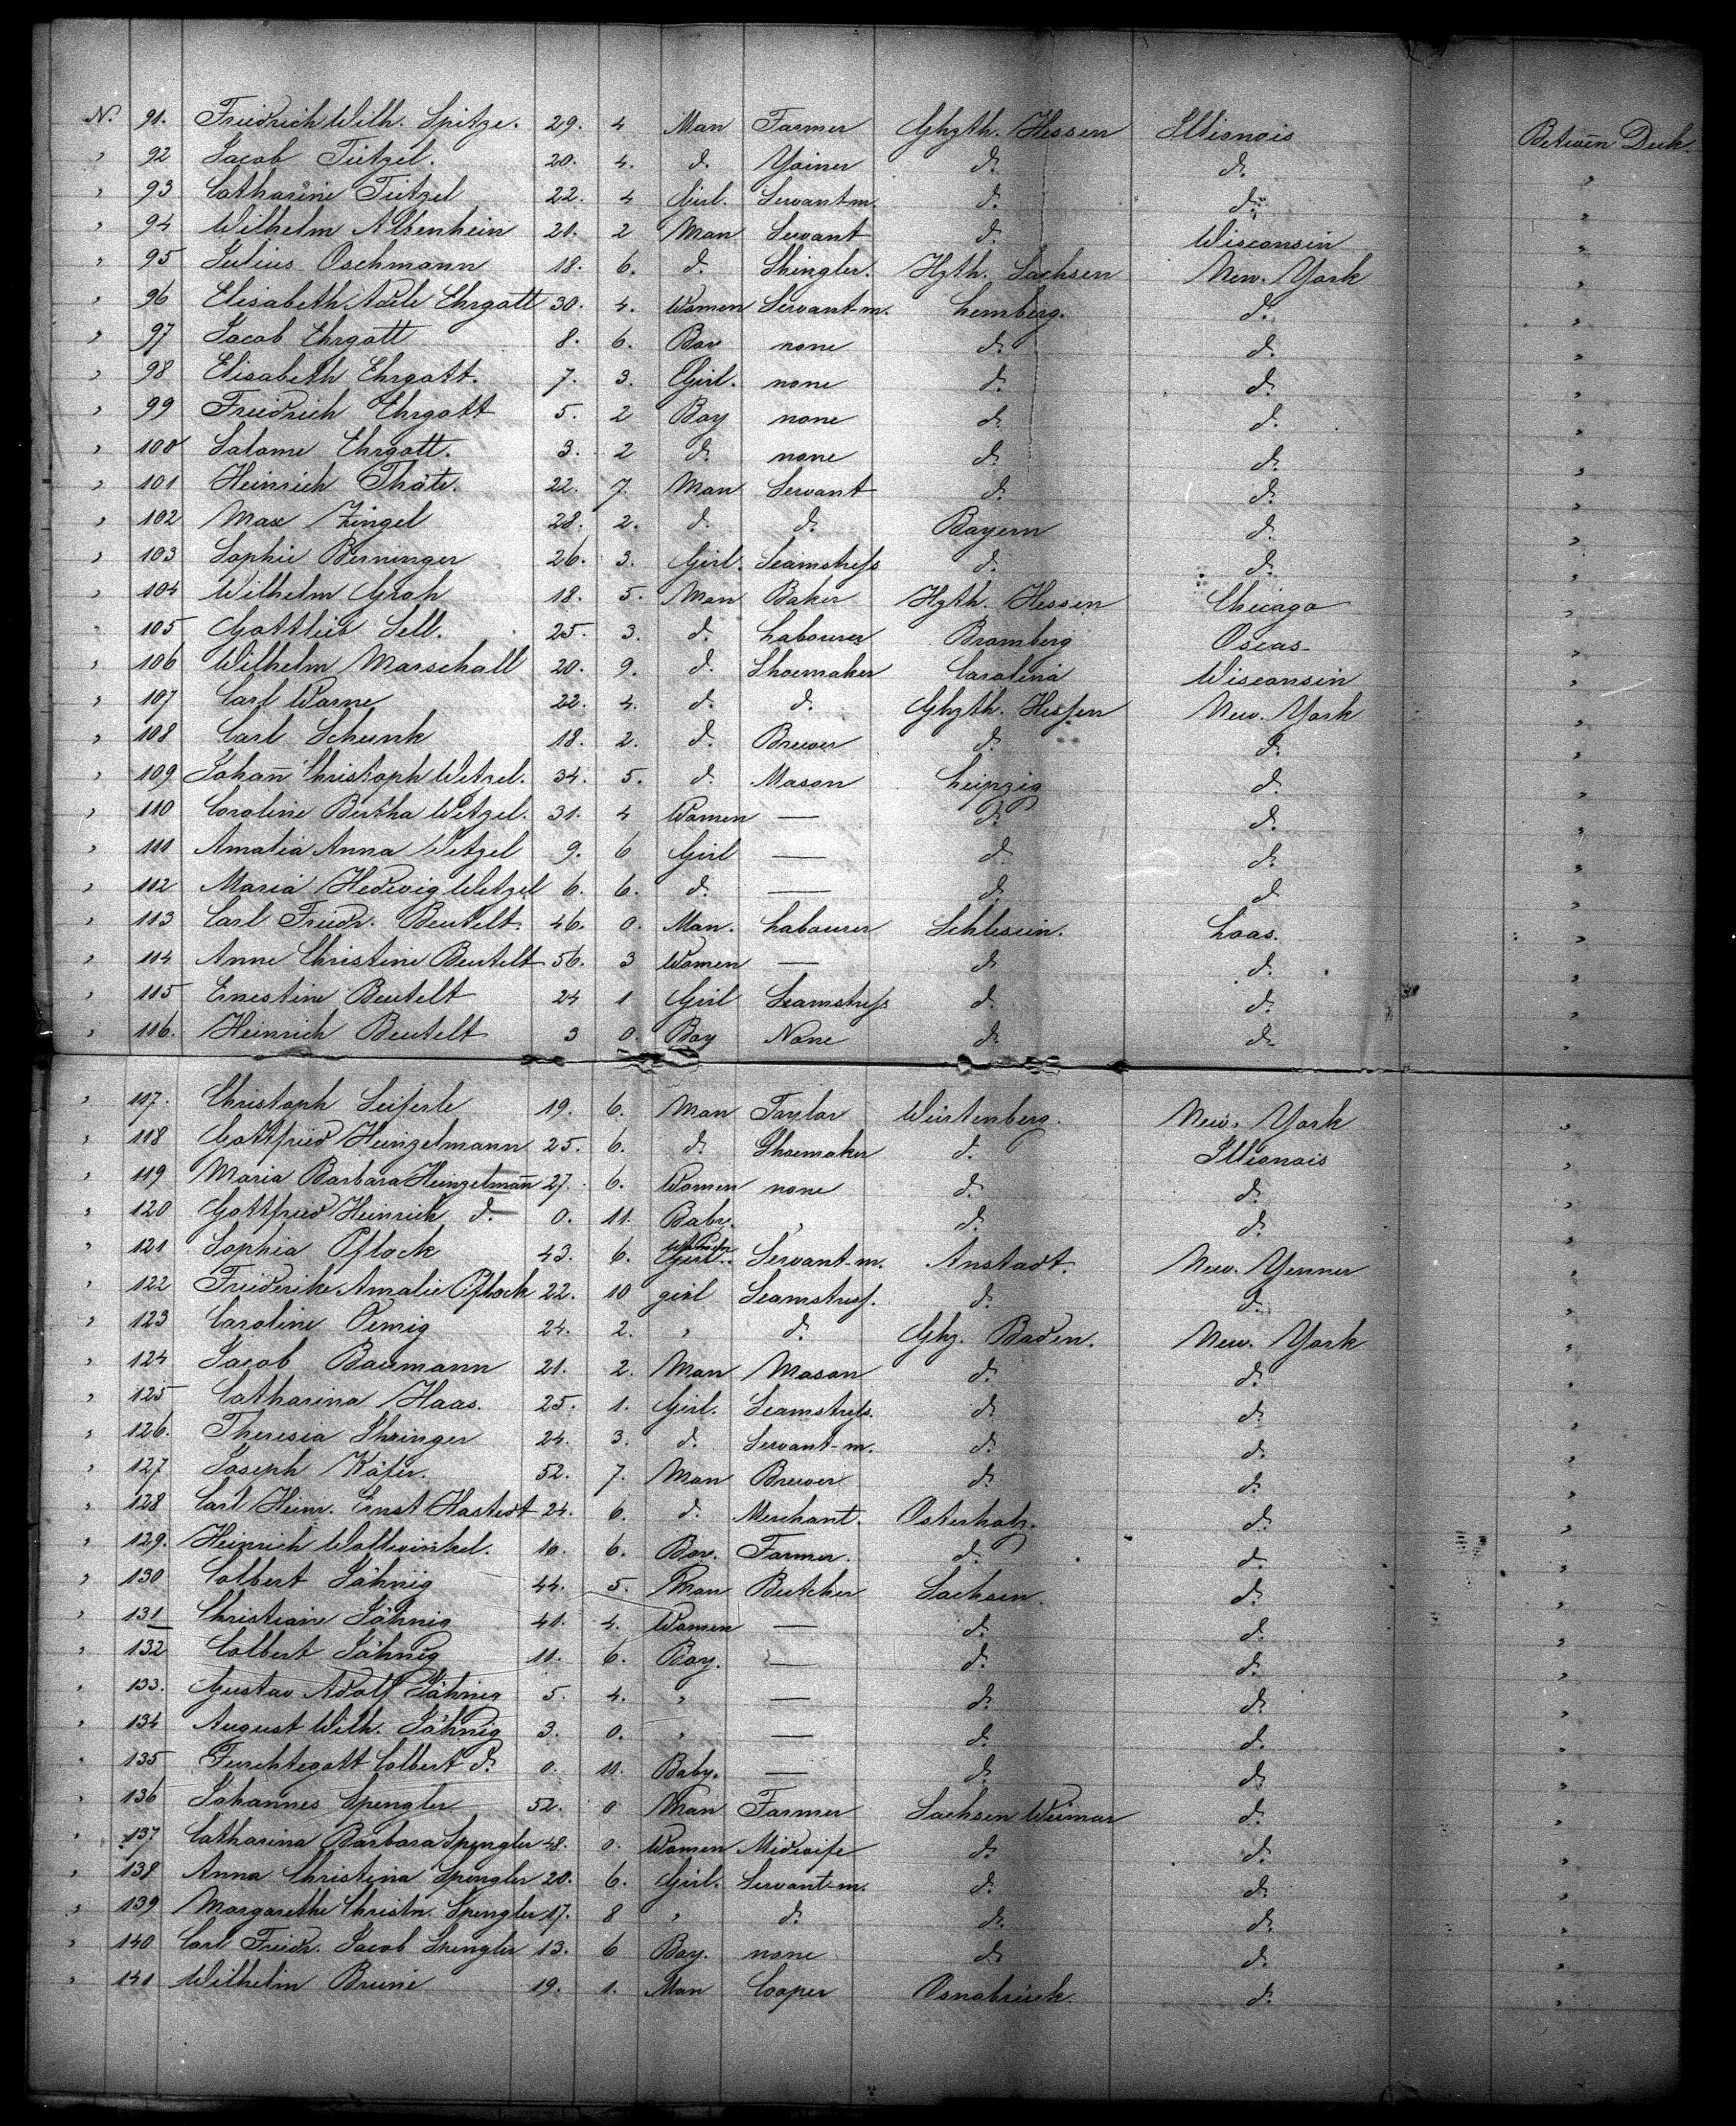 N. 91. Friedrich Wilh. Spitze. 29. 4 Man Farmer Ghzth. Hessen Illionois Betwēn Deck.
" 92 Jacob Tietzel. 20. 4. d. Yoiner d. d. "
" 93 Catharine Tietzel 22. 4 Girl. Servant-m. d. d. "
" 94 Wilhelm Altenhein 21. 2 Man Servant d. Wisconsin "
" 95 Julius Oschmann 18. 6. d. Shingler. Hzth. Sachsen New-York "
" 96 Elisabeth Adele Ehrgott 30. 4. Women Servant-m. Lemberg. d. "
" 97 Jacob Ehrgott 8. 6. Boy none d. d. "
" 98 Elisabeth Ehrgott. 7. 3. Girl. none d. d. "
" 99 Friedrich Ehrgott 5. 2 Boy none d. d. "
" 100 Salome Ehrgott. 3. 2 d. none d. d. "
" 101 Heinrich Thäte. 22. 7. Man Servant d. d. "
" 102 Max Zingel 28. 2. d. d. Bayern d. "
" 103 Sophie Berninger 26. 3. Girl. Seamstress d. d. "
" 104 Wilhelm Groh 18. 5. Man Baker Hzth. Hessen Chicago "
" 105 Gottlieb Sell. 25. 3. d. Labourer Bromberg "
" 106 Wilhelm Marschall 20. 9. d. Shoemaker Carolina Wisconsin "
" 107 Carl Warne 22. 4. d. d. Ghzth. Hessen New-York "
" 108 Carl Schunk 18. 2. d. Brewer d. d. "
" 109 Johan̄ Christoph Wetzel. 34. 5. d. Mason Leipzig d. "
" 110 Caroline Bertha Wetzel. 31. 4 Women — d. d. "
" 111 Amalia Anna Wetzel 9. 6 Girl — d. d. "
" 112 Maria Hedwig Wetzel 6. 6. d. — d. d "
" 113 Carl Friedr. Beutelt. 46. 0. Man. Labourer Schlesein. Loas. "
" 114 Anne Christine Beutelt 56. 3 Women — d d. "
" 115 Ernestine Beutelt 24 1 Girl Seamstress d. d. "
" 116. Heinrich Beutelt 3 0. Boy None d. d. "
" 117. Christoph Seiferle 19. 6. Man Taylor Würtenberg. New-York "
" 118 Gottfried Heinzelmann 25. 6. d. Shoemaker d. Illionois "
" 119 Maria Barbara Heinzelman̄ 27. 6. Women none d. d. "
" 120 Gottfried Heinrich d. 0. 11. Baby. " d. d. "
" 121 Sophia Pflock 43. 6. Women Girl. Servant-m. Anstadt. New-Yenner "
" 122 Friederike Amalie Pflock 22. 10 girl Seamstress. d. d. "
" 123 Caroline Oemig 24. 2. " d. Ghz. Baden. New-York "
" 124 Jacob Baumann 21. 2. Man Mason d. d. "
" 125 Catharina Haas. 25. 1. Girl. Seamstress. d. d. "
" 126. Theresia Shringer 24. 3. d. Servant-m. d. d. "
" 127 Joseph Käfer. 52. 7. Man Brewer d. d. "
" 128 Carl Heinr. Ernst Hastedt 24. 6. d. Merchant. Osterholz. d. "
" 129. Heinrich Woltewinkel. 16. 6. Boy. Farmer. d. d. "
" 130 Colbert Jähnig 44. 5. Man Butcher Sachsen. d. "
" 131 Christiane Jähnig 41. 4. Women — d. d. "
" 132 Colbert Jähnig 11. 6. Boy. — d. d. "
" 133. Gustav Adolf Jähnig 5. 4. " — d. d. "
" 134 August Wilh. Jähnig 3. 0. " — d. d. "
" 135 Furchtegott Colbert d. 0. 10. Baby. — d. d. "
" 136 Johannes Spengler 52. 0 Man Farmer Sachsen Weimar d. "
" 137 Catharina Barbara Spengler 48. 0. Women Midwife d. d. "
" 138 Anna Christina Spengler 20. 6. Girl. Servant-m. d. d. "
" 139 Margarethe Christn. Spengler 17. 8 " d. d. d. "
" 140 Carl Friedr. Jacob Spengler 13. 6 Boy. none d. d. "
" 141 Wilhelm Brune 19. 1. Man Cooper Osnabrück. d. "